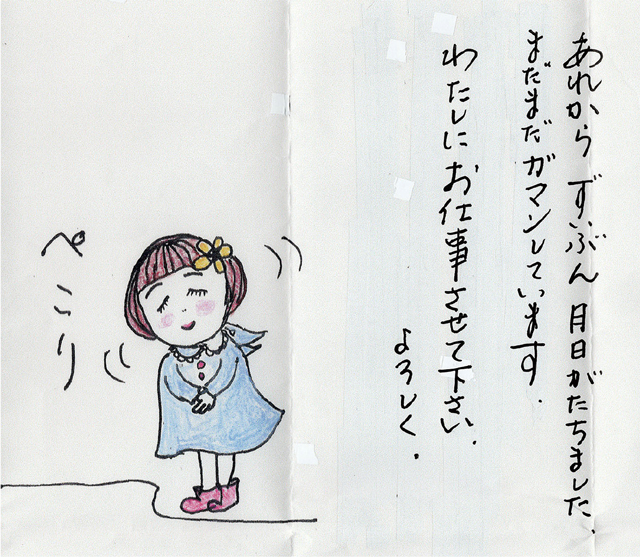 あれから ずいぶん 月日がたちました.
まだまだガマンしています.
わたしにお仕事させて下さい.
よろしく.
ぺこり